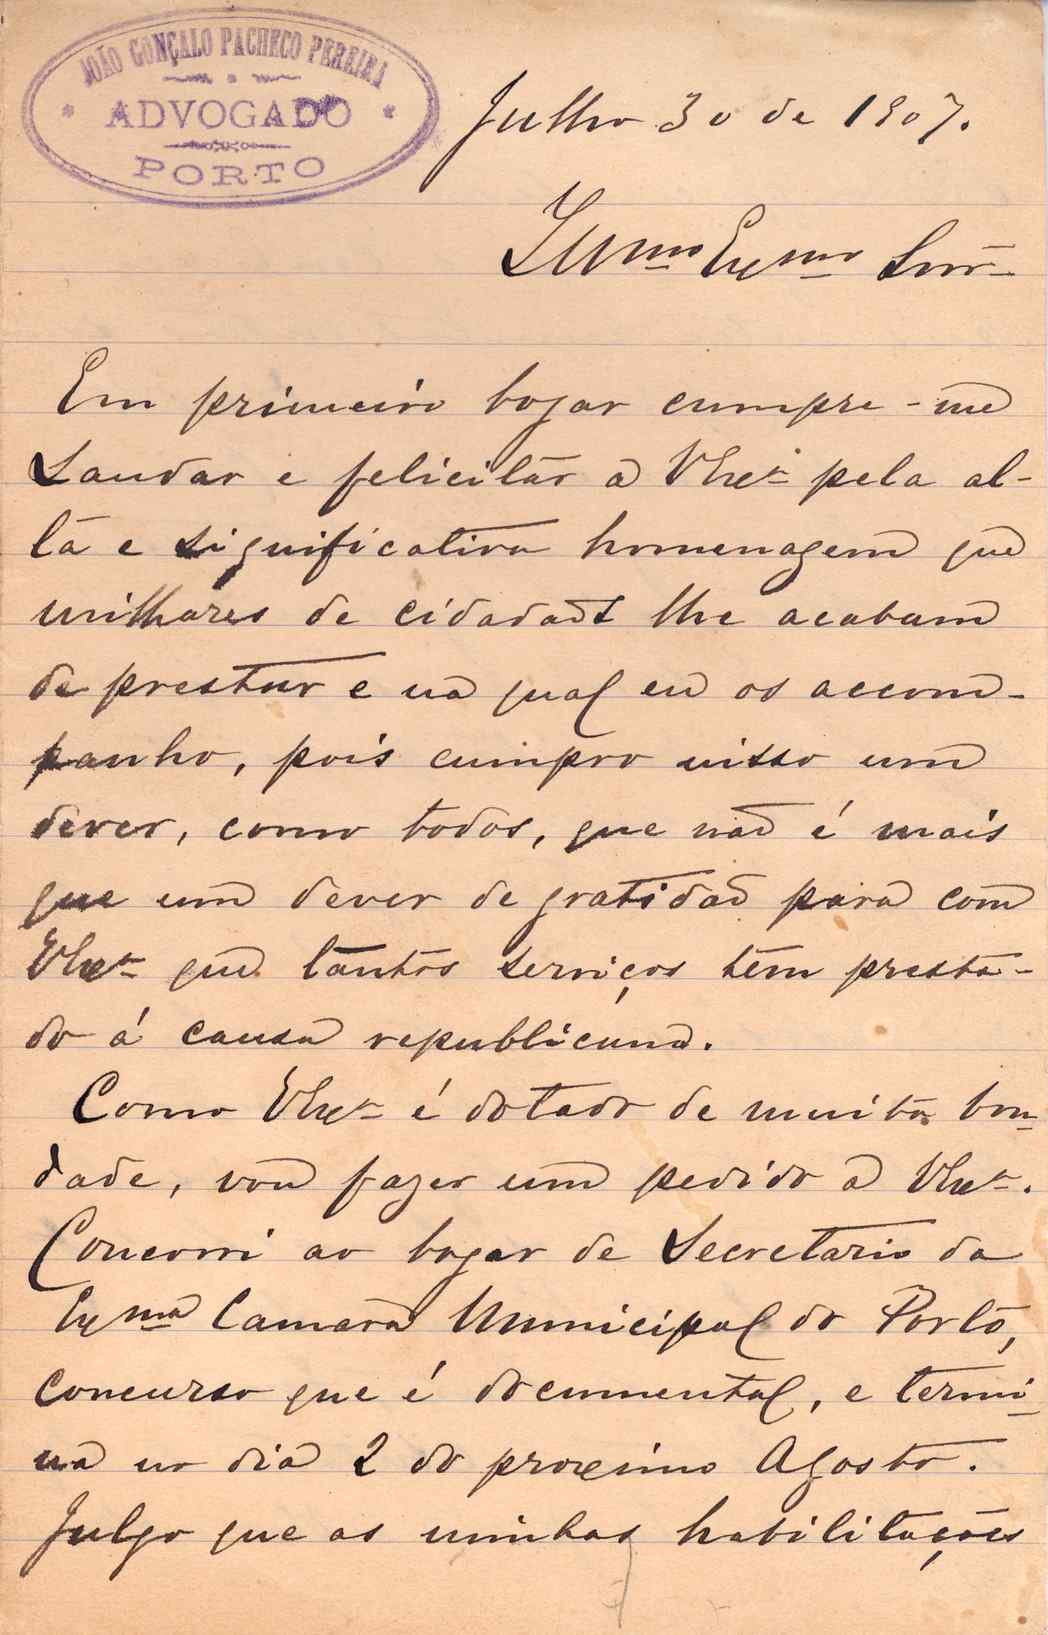 JOÃO GONÇALO PACHECO PEREIRA
ADVOGADO
PORTO
Julho 30 de 1907.
Illmo Exmo Snr
Em primeiro logar cumpre-me
saudar e felicitar a V Exa pela al-
ta e significativa homenagem que
milhares de cidadãos lhe acabam
de prestar e na qual eu os accom-
panho, pois cumpro nisso um
dever, como todos, que não é mais
que um dever de gratidão para com
V Exa que tantos serviços tem presta-
do á causa republicana.
Como V Exa é dotado de muita bon-
dade, vou fazer um pedido a V Exa.
Concorri ao logar de Secretario da
Exma Camara Municipal do Porto,
concurso que é documental, e termi-
na no dia 2 do proximo Agosto.
Julgo que as minhas habilitações